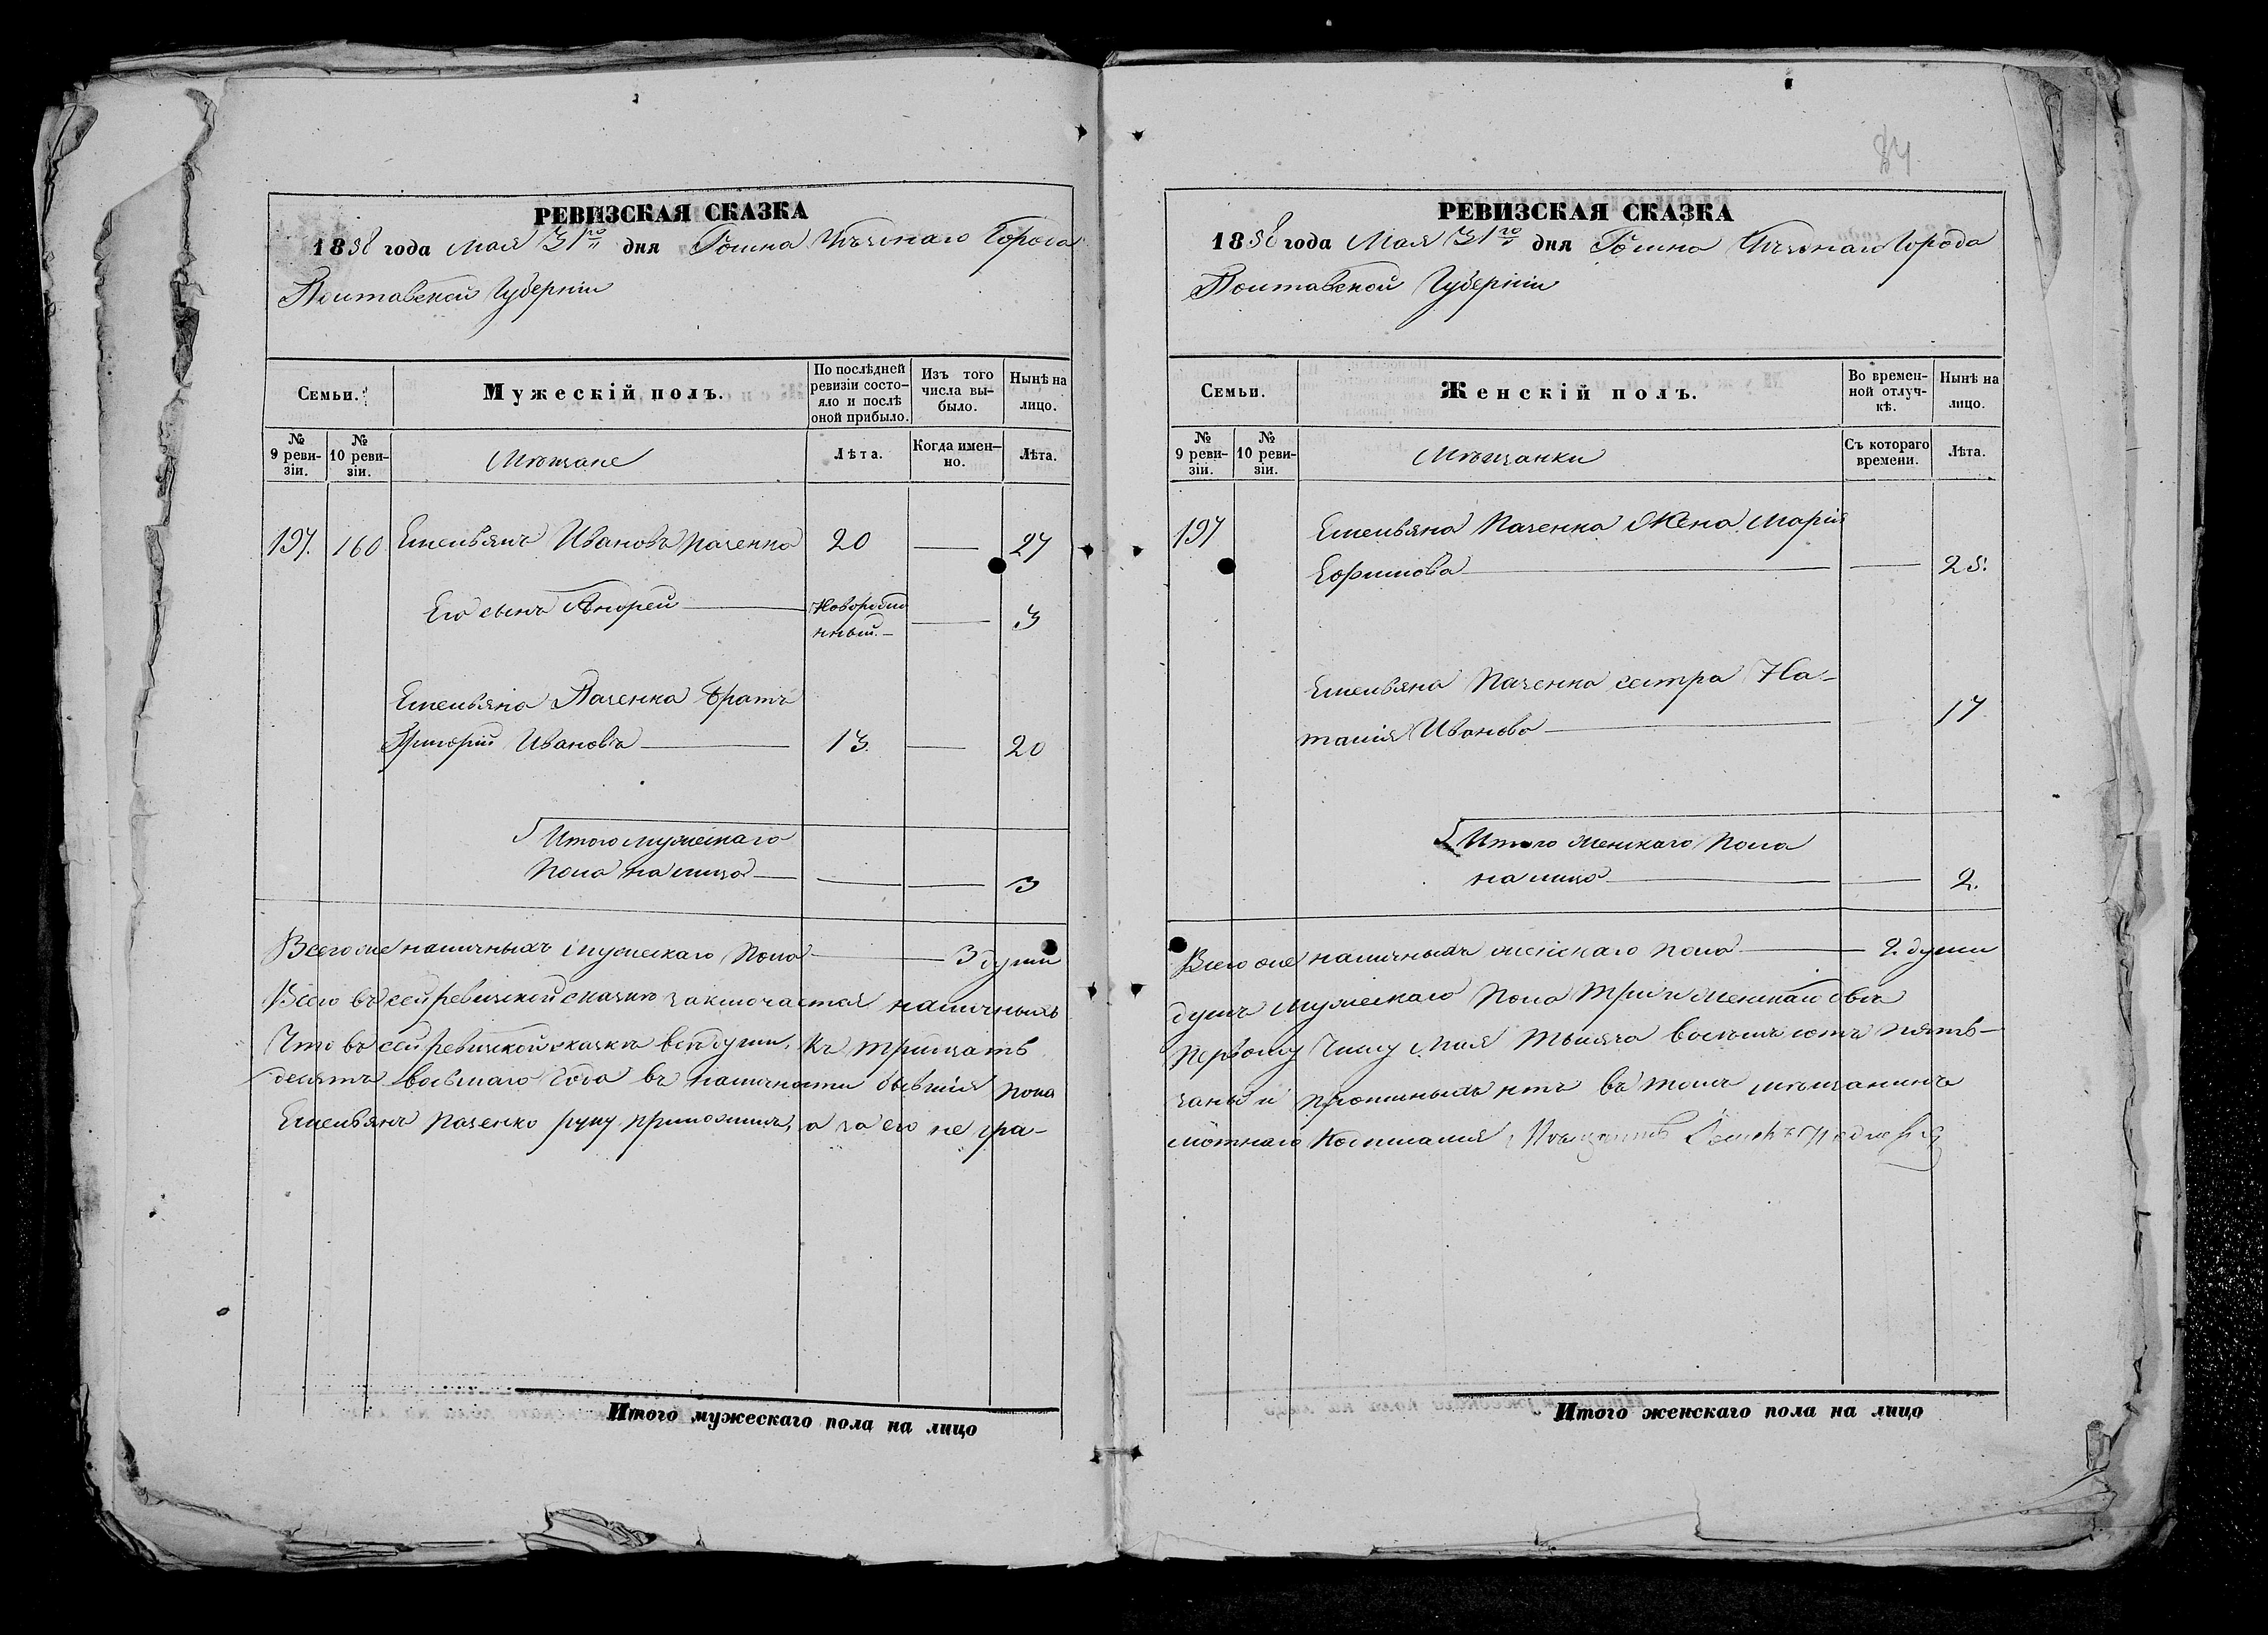 РЕВИЗСКАЯ СКАЗКА
1858 года Мая 31го дня Ромна Уѣзднаго Города
Полтавской Губерніи
Семьи.
Мужескій полъ.
По послѣдней ревизіи состояло и послѣ оной прибыло.
Изъ того числа выбыло.
Нынѣ на лицо.
№ 9 ревизіи.
№ 10 ревизіи.
Мѣщане
Лѣта.
Когда именно.
Лѣта.
197. 160 Емельянъ Ивановъ Паченко 20 — 27
Его сынъ Андрей — Новорожде
нный. — 3
Емельяна Паченка братъ
Григорій Ивановъ — 13. — 20
Итого мужескаго
пола на лицо — 3
Всего же наличныхъ мужескаго пола — 3 души
Всего въ сей ревизской сказкѣ заключается наличныхъ
Что въ сей ревизской сказкѣ всѣ души, къ тридцать
десятъ восьмаго года въ наличности бывшія пока
Емельянъ Паченко руку приложилъ, а за его не гра-
Итого мужескаго пола на лицо
84
РЕВИЗСКАЯ СКАЗКА
1858 года Мая 31го дня Ромна Уѣзднаго Города
Полтавской Губерніи
Семьи.
Женскій полъ.
Во временной отлучкѣ.
Нынѣ на лицо.
№ 9 ревизіи.
№ 10 ревизіи.
Мѣщанки
Съ котораго времени.
Лѣта.
197 Емельяна Паченка Жена Марія
Ефимова — 25.
Емельяна Паченка сестра На-
талія Иванова — 17
Итого женскаго пола
на лицо — 2.
Всего же наличныхъ женскаго пола — 2 души
душъ мужескаго пола три и женскаго двѣ
первому числу Мая тысяча восемь сотъ пять-
заны и прописныхъ нѣтъ въ томъ мѣщанинъ
мотнаго
Итого женскаго пола на лицо